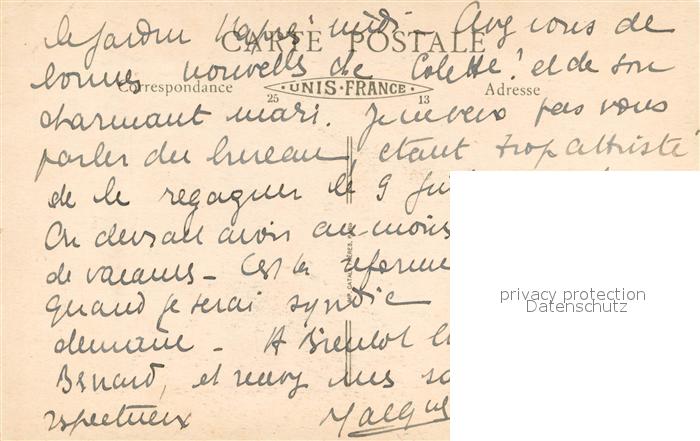 le jardin l'après midi – Avez vous de
CARTE POSTALE
bonnes nouvelles de Colette? et de son
Correspondance
UNIS-FRANCE
25
13
Adresse
charmant mari. Je ne veux pas vous
parler du bureau, étant trop attristé
de le regagner le 9
On devrait avoir au moins
de vacances – C'est la réforme
quand je serai syndic
demande – A Bientot
Bernard, et recevez mes
respectueux
Jacques
privacy protection
Datenschutz